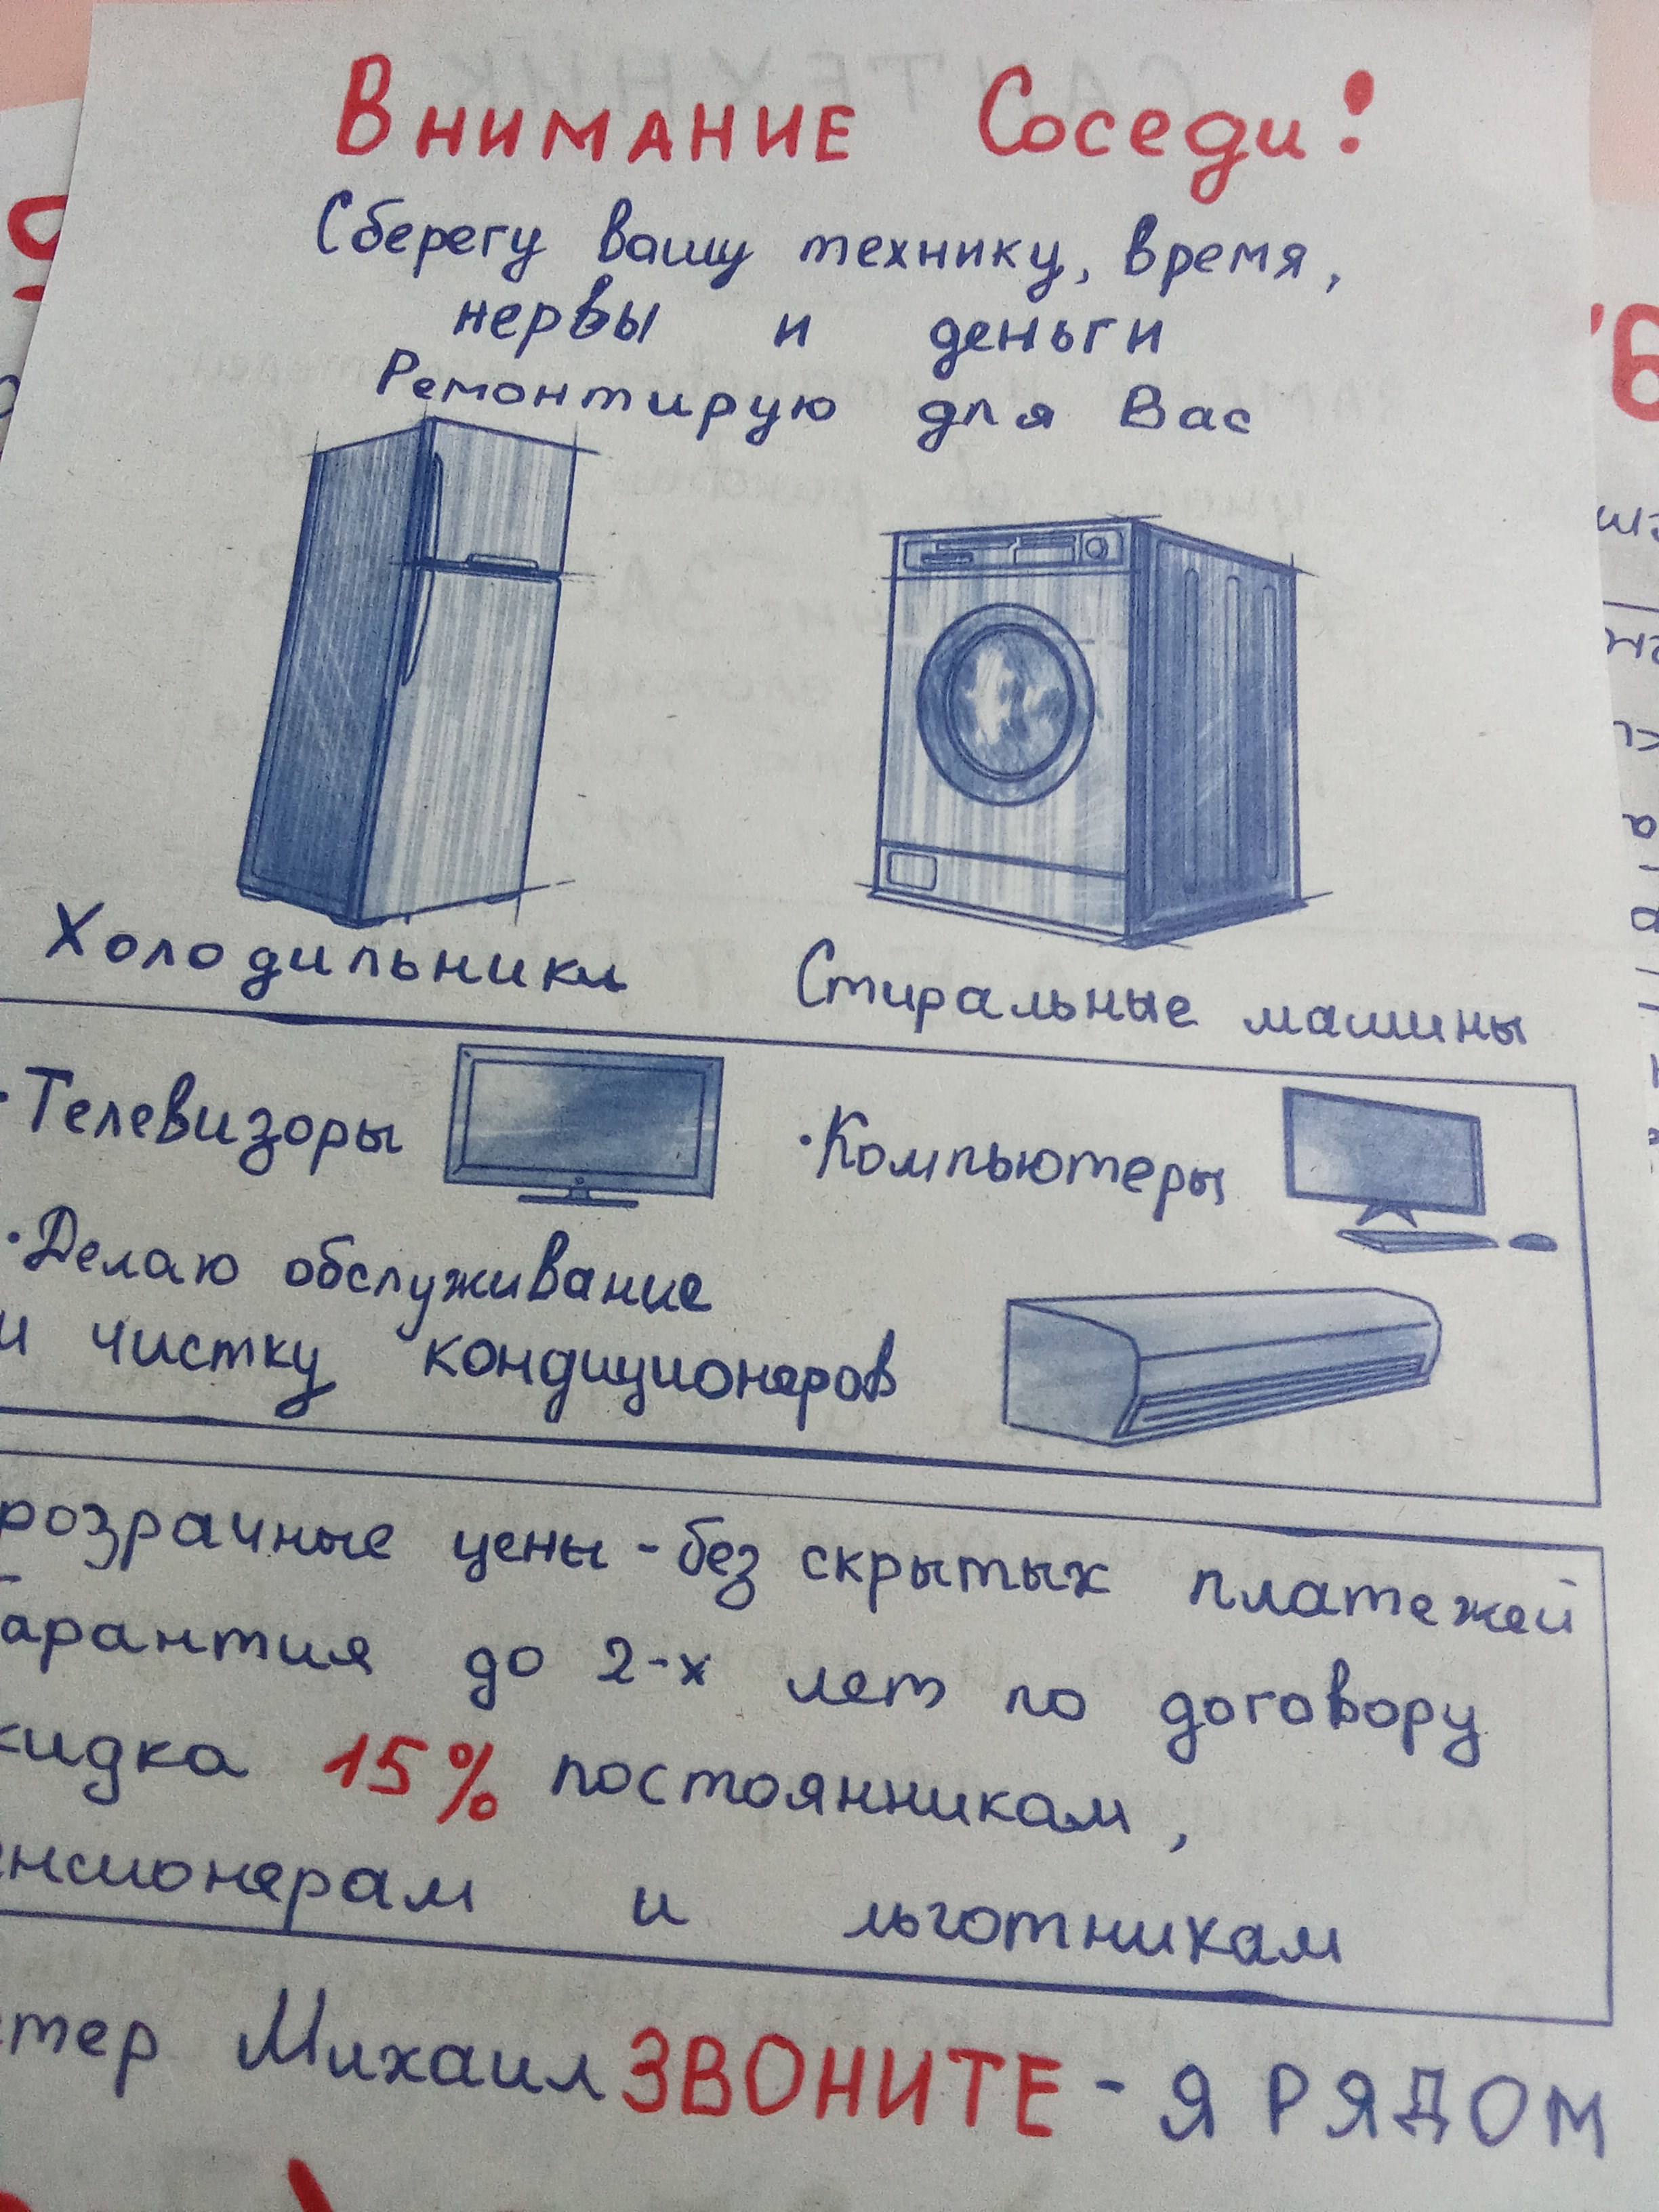 Внимание Соседи!
Сберегу вашу технику, время,
нервы и деньги
Ремонтирую для Вас
Холодильники
Стиральные машины
·Телевизоры
·Компьютеры
·Делаю обслуживание
и чистку кондиционеров
розрачные цены - без скрытых платежей
Гарантия до 2-х лет по договору
кидка 15% постоянникам,
енсионерам и льготникам
стер Михаил ЗВОНИТЕ - Я РЯДОМ